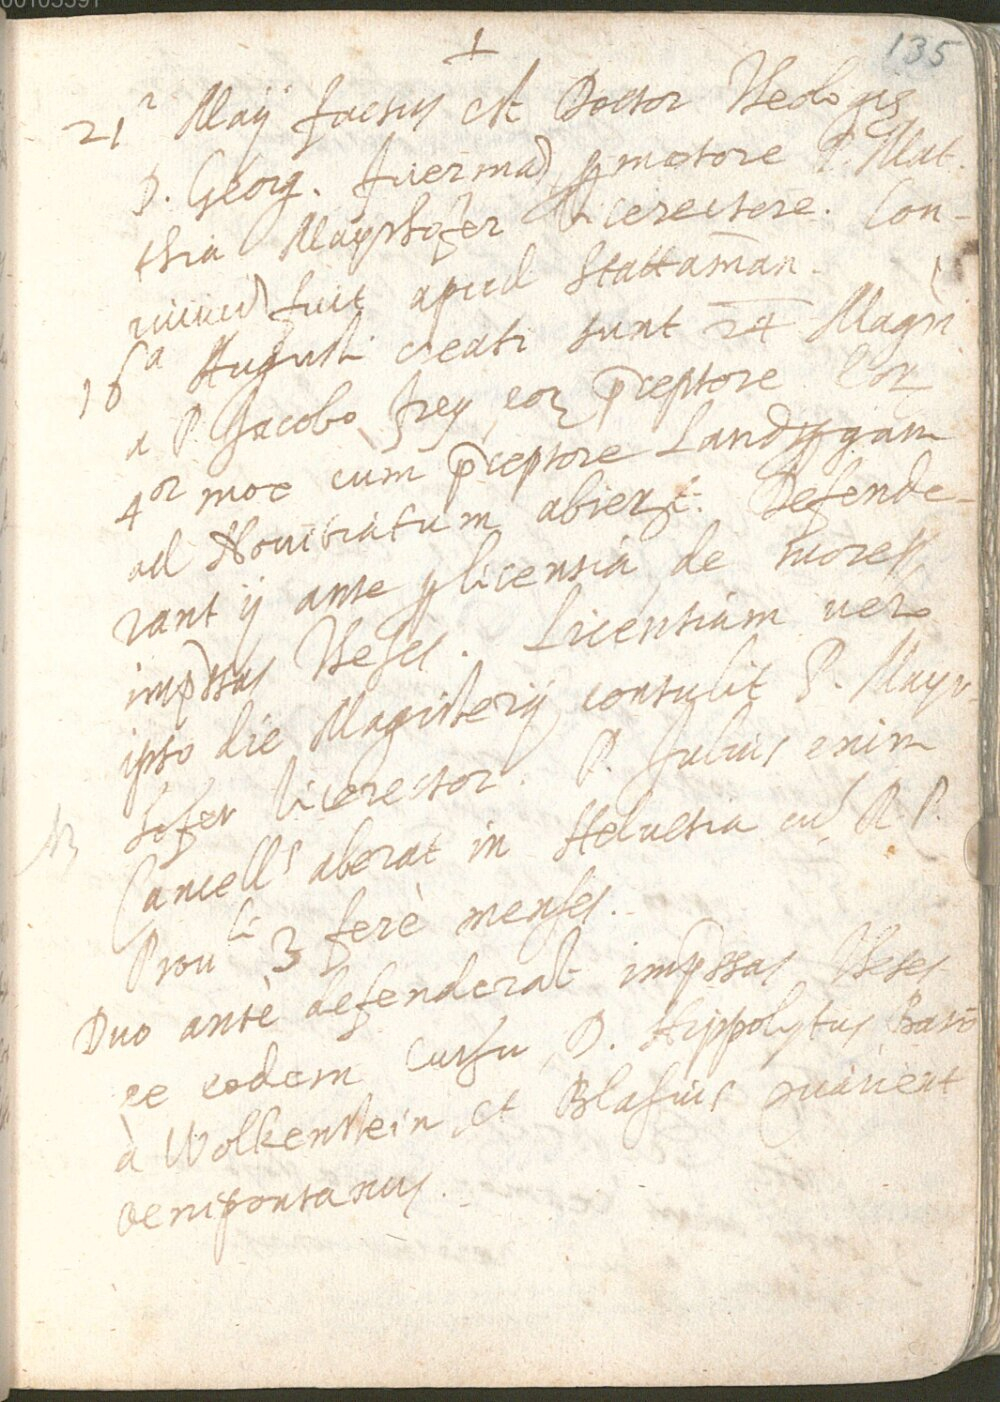 00103391
135
1
21ª Maÿ factus est Doctor Theologiæ
D. Georg. promotore P. Mat-
thia Mayrhofer Vicerectore. Con-
uiuiū fuit apud Stattamān.
16ª Augusti creati sunt 24 Magri
a P. Jacobo Frey, eorꝝ p̄ceptore. Eorꝝ
4or mox cum p̄ceptore Landspergam
ad Nouitiatum abierūt. Defende-
rant ij ante licentiā de more
imp̄ssas Theses. Licentiam uero
ipso die Magisterij contulit P. Mayr-
hofer Vicerector. P. Julius enim
Cancells aberat in Heluetia cū R. P.
Prouli 3 ferè menses.
NB
Duo antè defenderāt imp̄ssas Theses
ex eodem Cursu, D. Hippolytus Baro
à Wolkenstein, et Blasius
Oenipontanus.